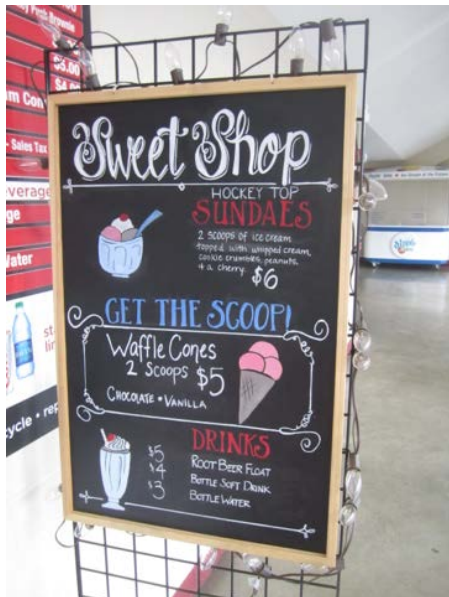 Brownie
$5.00
$4.00
- Sales Tax
Water
Sweet Shop
HOCKEY TOP
SUNDAES
2 scoops of ice cream
topped with whipped cream,
cookie crumbles, peanuts,
& a cherry. $6
GET THE SCOOP!
Waffle Cones
2 Scoops $5
CHOCOLATE • VANILLA
DRINKS
$5 ROOT BEER FLOAT
$4 BOTTLE SOFT DRINK
$3 BOTTLE WATER